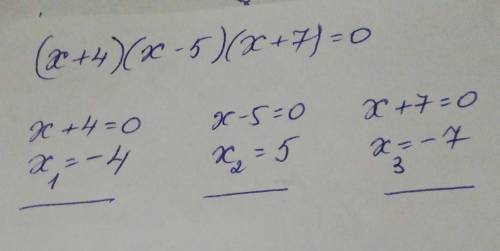 (x+4)(x-5)(x+7)=0
x+4=0 x-5=0 x+7=0
x₁=-4 x₂=5 x₃=-7